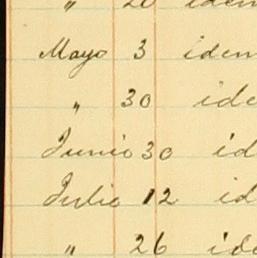 " 20 iden
Mayo 3 iden
" 30 ide
Junio 30 id
Julio 12 id
" 26 ide